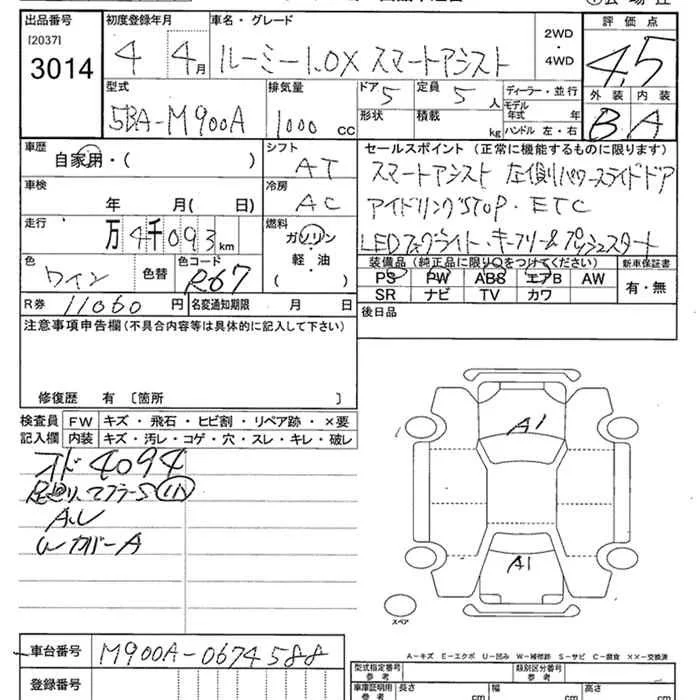 出品番号 初度登録年月 車名・グレード 評価点
[2037]
3014 4 4月 ルーミー1.0X スマートアシスト 2WD・4WD 4.5
型式 排気量 ドア 5 定員 5人 ディーラー・並行 外装 内装
5BA-M900A 1000 CC 形状 積載 kg モデル年式 年 B A
ハンドル 左・右
車歴 シフト セールスポイント(正常に機能するものに限ります)
自家用・( ) AT スマートアシスト 左側パワースライドドア
車検 年 月( 日) 冷房 AC アイドリングSTOP・ETC
走行 万4千093km 燃料 ガソリン・軽・油( ) LEDフォグライト・キーフリー&プッシュスタート
色 ワイン 色替 色コード R67 装備品(純正品に限り○をつけてください) 新車保証書
PS PW ABS エアB AW 有・無
SR ナビ TV カワ
R券 11060円 名変通知期限 月 日 後日品
注意事項申告欄(不具合内容等は具体的に記入して下さい)
修復歴 有 〔箇所 〕
検査員 FW キズ・飛石・ヒビ割・リペア跡・×要
記入欄 内装 キズ・汚レ・コゲ・穴・スレ・キレ・破レ
オド4094
足廻り、マフラーS
AU
WカバーA
A1
A1
スペア
車台番号 M900A-0674588
A-キズ E-エクボ U-凹み W-補修跡 S-サビ C-腐食 ××-交換済
登録番号 型式指定番号 参考 類別区分番号 参考
車庫証明用 参考 長さ cm 幅 cm 高さ cm